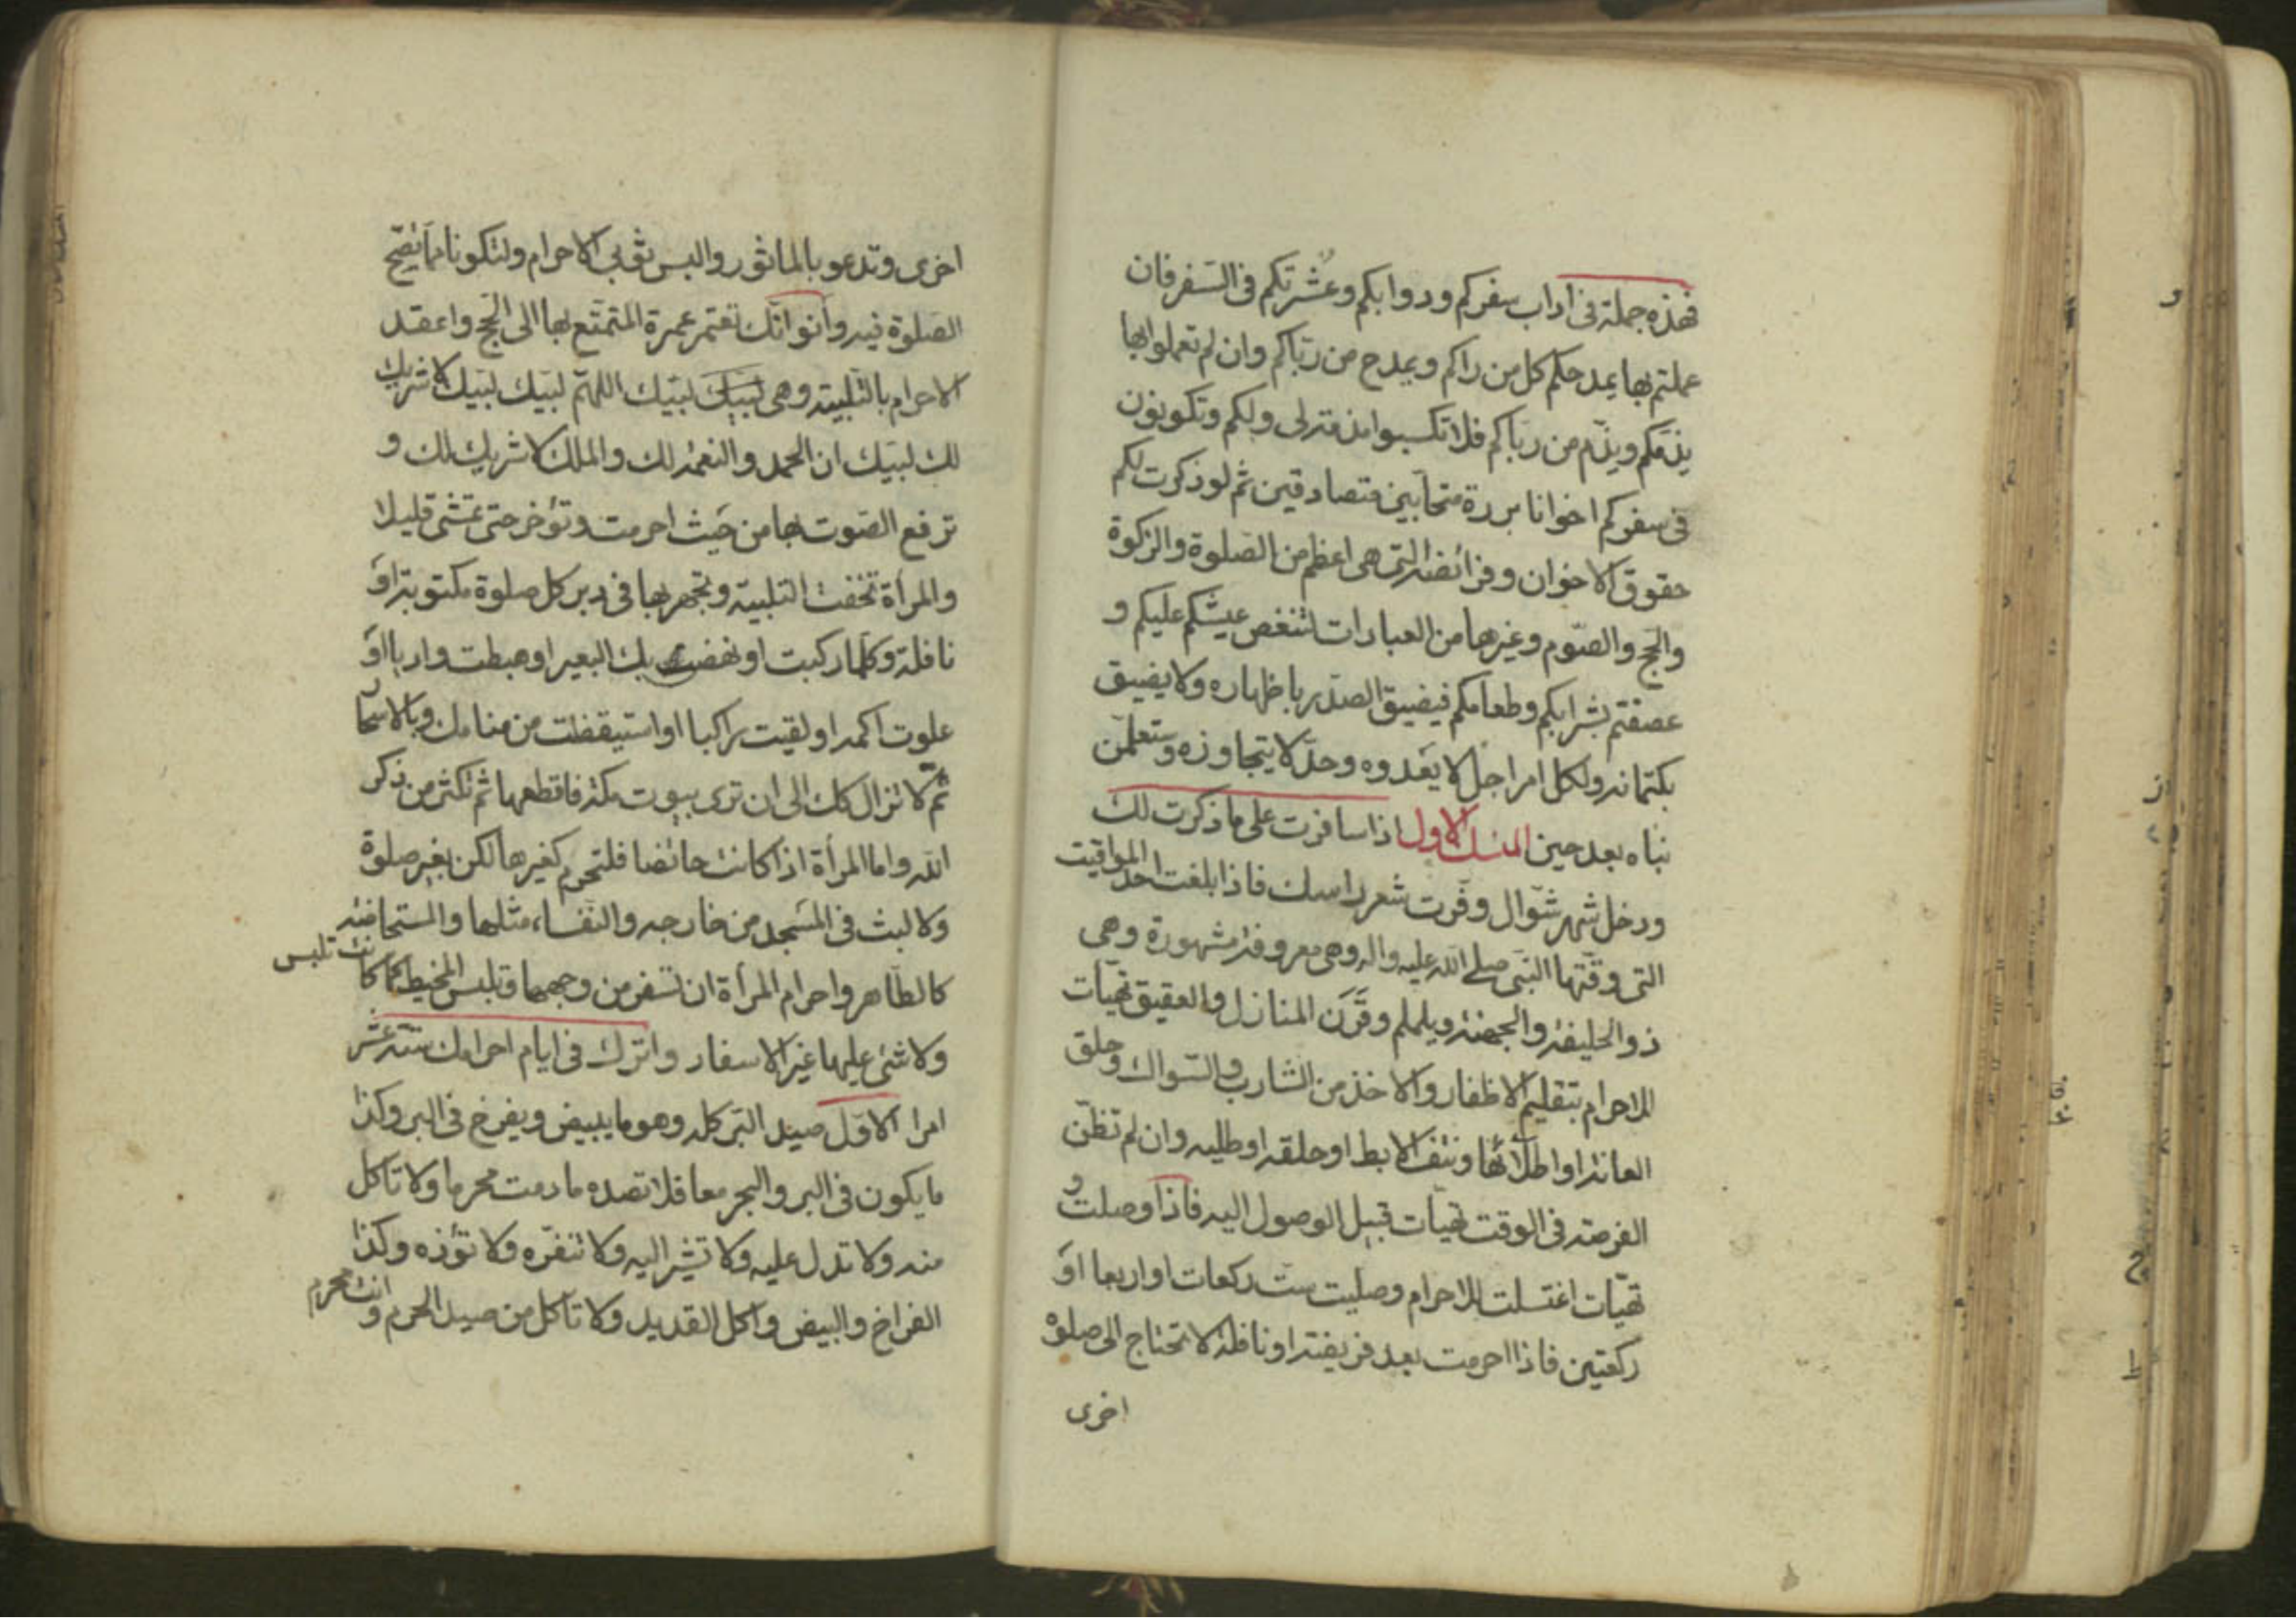 فهذه جملة فى اداب سفركم ودوابكم وعشرتكم فى السفر فان
عملتم بها يمدحكم كل من راكم ويمدح من رباكم وان لم تعملوا بها
يذمكم ويذم من رباكم فلا تكسبوا مذمة لى ولكم وتكونون
فى سفركم اخوانا بررة متحابين متصادقين ثم لو ذكرت لكم
حقوق الاخوان وفرائضه التى هى اعظم من الصلوة والزكوة
والحج والصوم وغيرها من العبادات لتنغص عيشكم عليكم و
غصصتم بشرابكم وطعامكم فيضيق الصدر باظهاره ولا يضيق
بكتمانه ولكل امر اجل لا يعدوه وحد لا يتجاوزه وستعلمن
نباه بعد حين المنسك الاول اذا سافرت على ما ذكرت لك
ودخل شهر شوال وفرت شعر راسك فاذا بلغت احد المواقيت
التى وقتها النبى صلى الله عليه واله وهى معروفة مشهورة وهى
ذو الحليفة والجحفة ويلملم وقرن المنازل والعقيق تهيات
للاحرام بتقليم الاظفار والاخذ من الشارب والسواك وحلق
العانة او اطلائها ونتف الابط او حلقه او طليه وان لم تظن
الفرصة فى الوقت تهيات قبيل الوصول اليه فاذا وصلت و
تهيات اغتسلت للاحرام وصليت ست ركعات او اربعا او
ركعتين فاذا احرمت بعد فريضة او نافلة لا تحتاج الى صلوة
اخرى
اخرى وتدعو بالماثور والبس ثوبى الاحرام ولتكونا مما تصح
الصلوة فيه وانو انك تعتمر عمرة المتمتع بها الى الحج واعقد
الاحرام بالتلبية وهى لبيك اللهم لبيك لبيك لا شريك
لك لبيك ان الحمد والنعمة لك والملك لا شريك لك و
ترفع الصوت بها من حيث احرمت وتؤخر حتى تمشى قليلا
والمرأة تخفت التلبية وتجهر بها فى دبر كل صلوة مكتوبة او
نافلة وكلما ركبت او نهض بك البعير او هبطت واديا او
علوت اكمة او لقيت راكبا او استيقظت من منامك وبالاسحار
ثم لا تزال كك الى ان ترى بيوت مكة فاقطعها ثم تكثر من ذكر
الله واما المرأة اذا كانت حائضا فلتحرم كغيرها لكن بغير صلوة
ولا لبث فى المسجد من خارجه والنفساء مثلها والمستحاضة
كالطاهر واحرام المرأة ان تسفر من وجهها وتلبس المخيط كما كانت تلبس
ولا شئ عليها غير الاسفار واترك فى ايام احرامك ستة عشر
امرا الاول صيد البر كله وهو ما يبيض ويفرخ فى البر وكذا
ما يكون فى البر والبحر معا فلا تصده ما دمت محرما ولا تاكل
منه ولا تدل عليه ولا تشير اليه ولا تنفره ولا تؤذه وكذا
الفراخ والبيض واكل القديد ولا تاكل من صيد الحرم وانت محرم